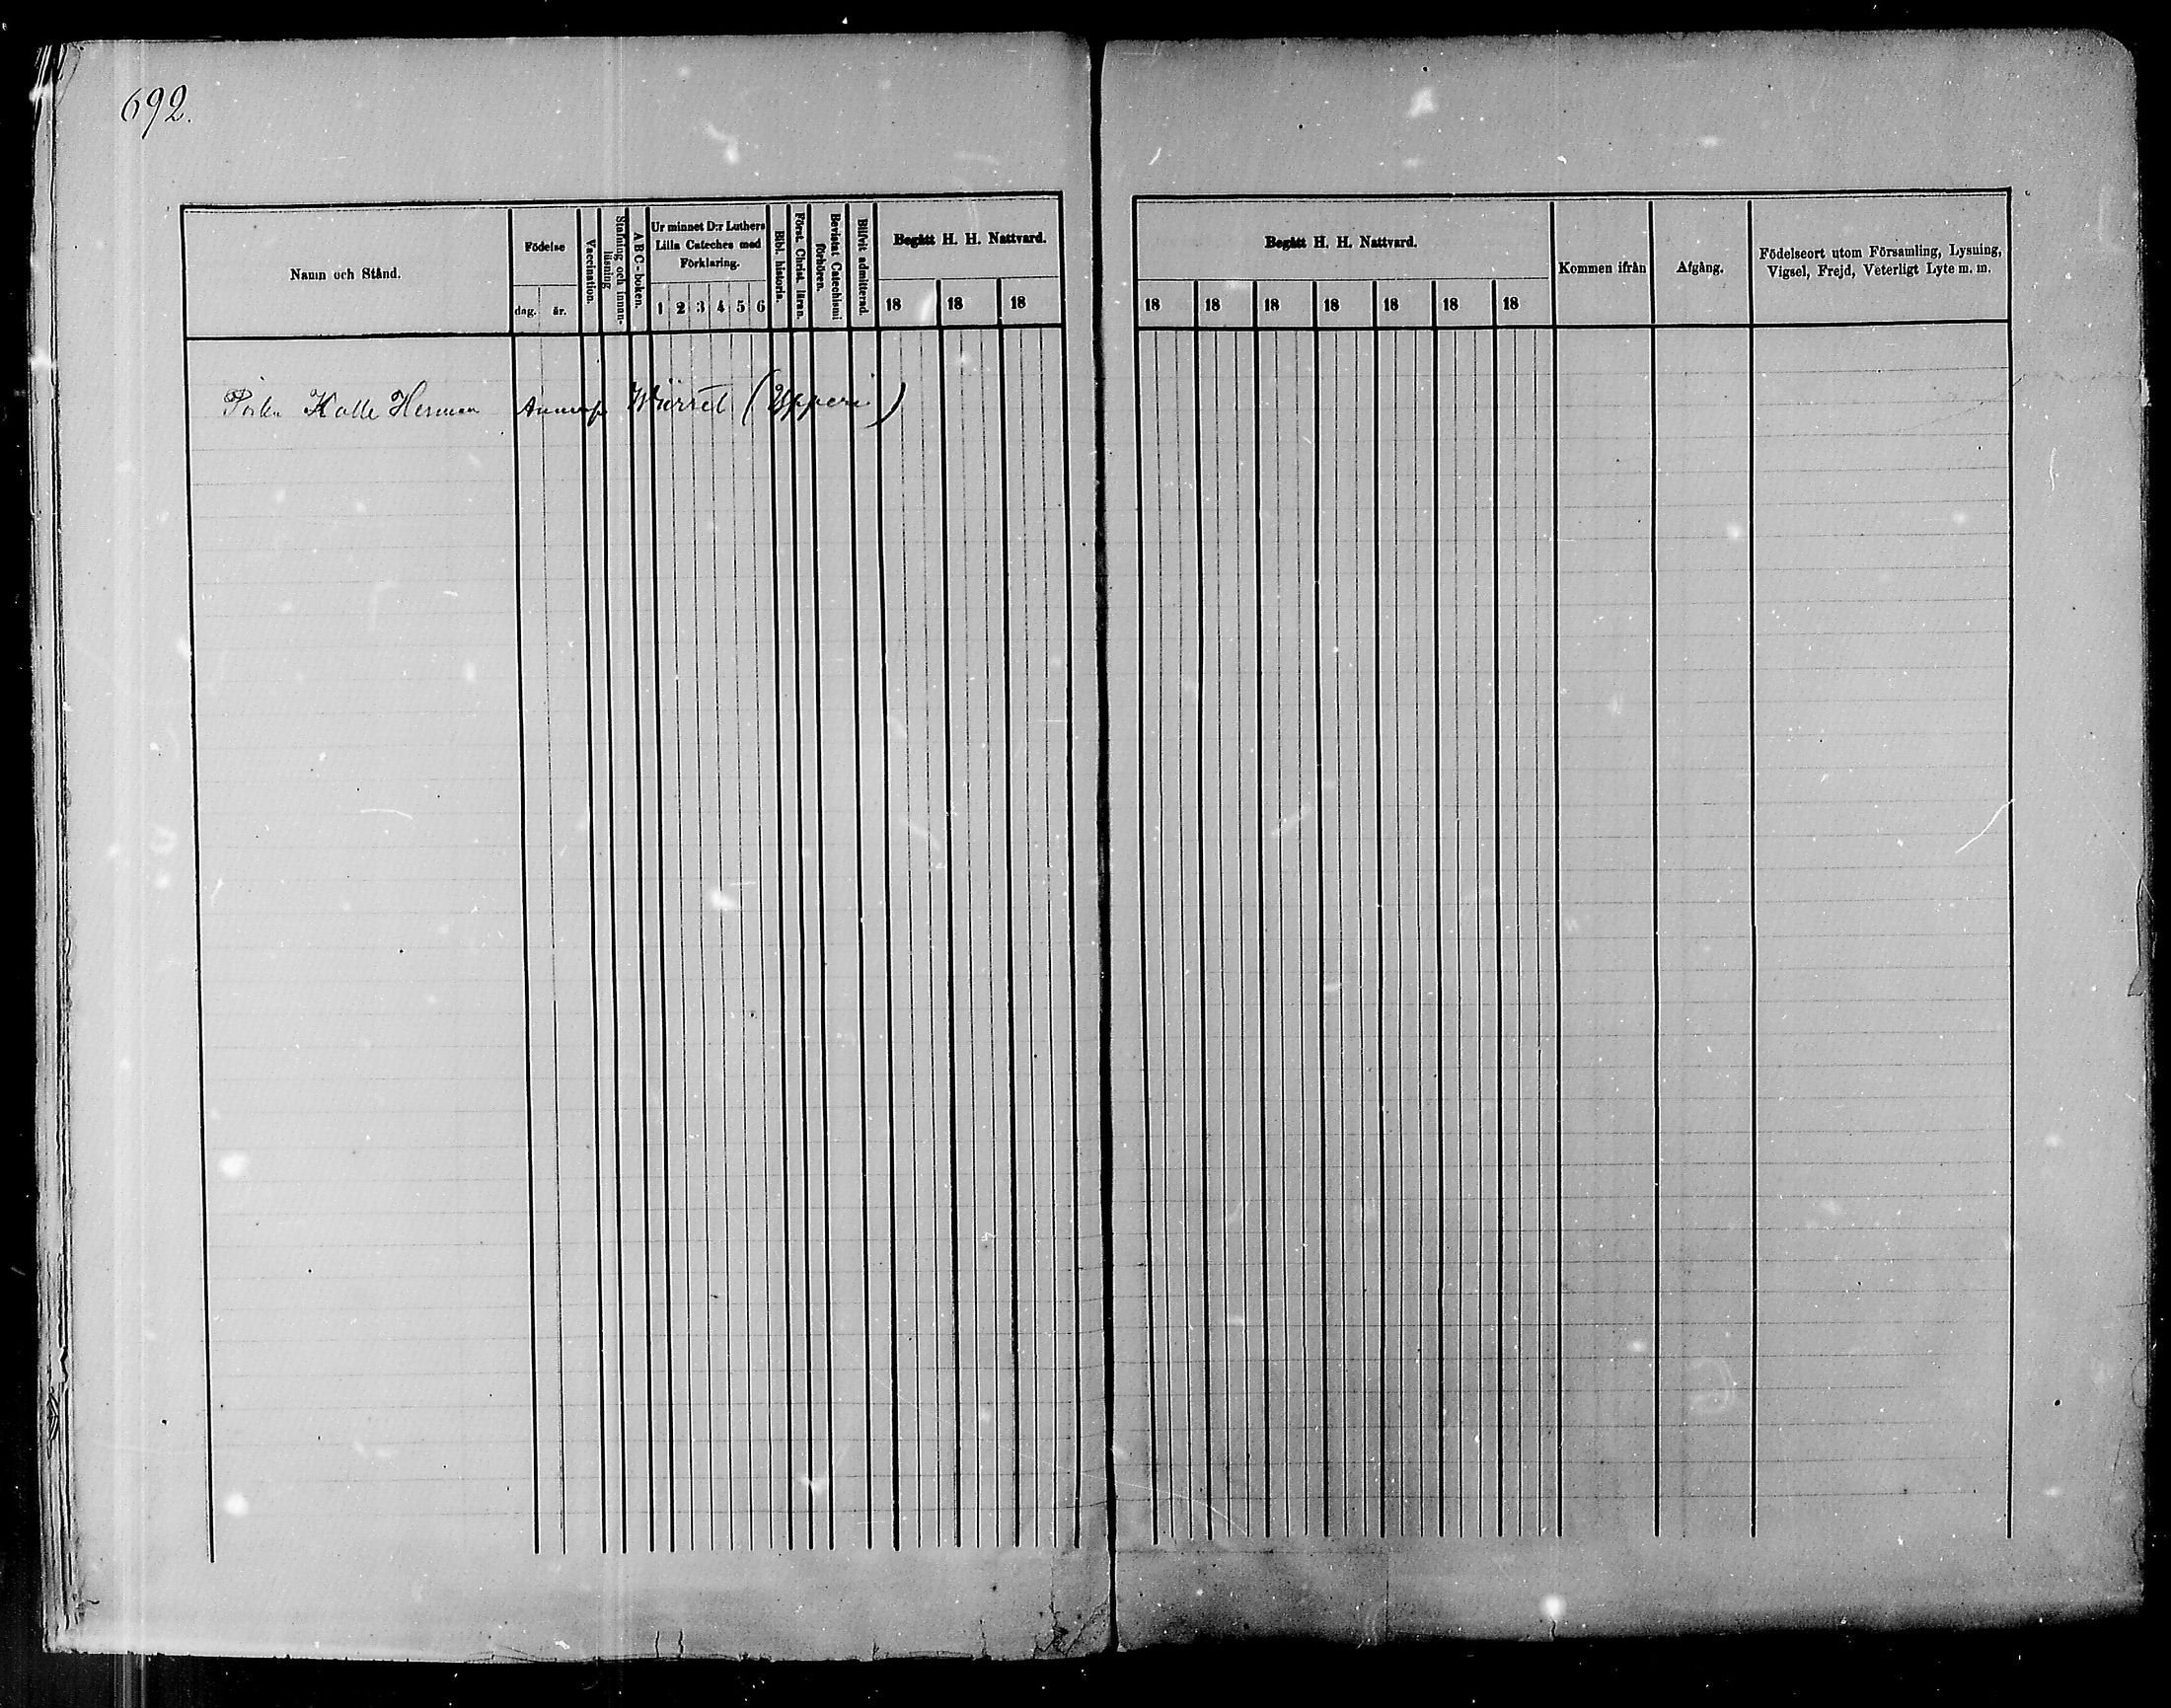 692.
Namn och Stånd.
Födelse
dag. år.
Vaccination.
Stafning och innan-
läsning
A B C-boken.
Ur minnet D:r Luthers
Lilla Cateches med
Förklaring.
1 2 3 4 5 6
Bibl. historia.
Först. Christ. läran.
Bevistat Catechismi
förhören.
Blifvit admitterad.
Begått H. H. Nattvard.
18 18 18
Begått H. H. Nattvard.
18 18 18 18 18 18 18
Kommen ifrån
Afgång.
Födelseort utom Församling, Lysning,
Vigsel, Frejd, Veterligt Lyte m. m.
Kalle Herman